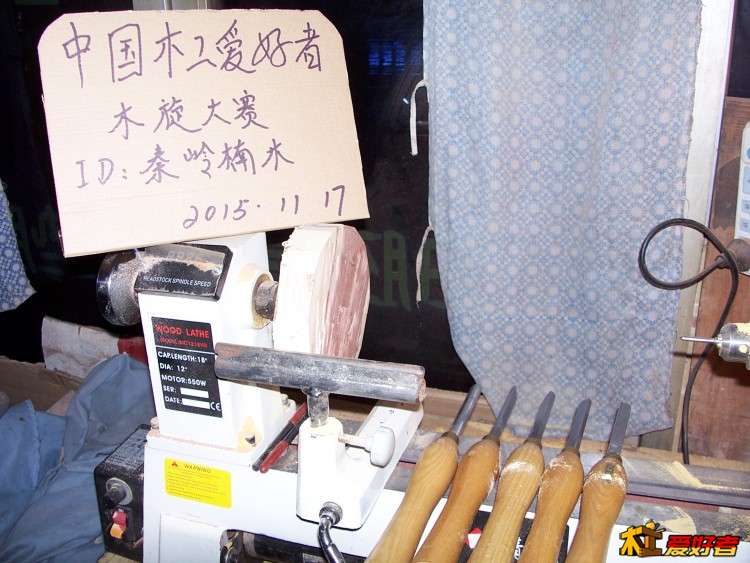 中国木工爱好者
木旋大赛
ID: 秦岭楠木
2015.11 17
HEADSTOCK SPINDLE SPEED
WOOD LATHE
CAP.LENGTH: 18"
DIA: 12"
MOTOR: 550W
SER:
DATE: CE
WARNING
木工爱好者